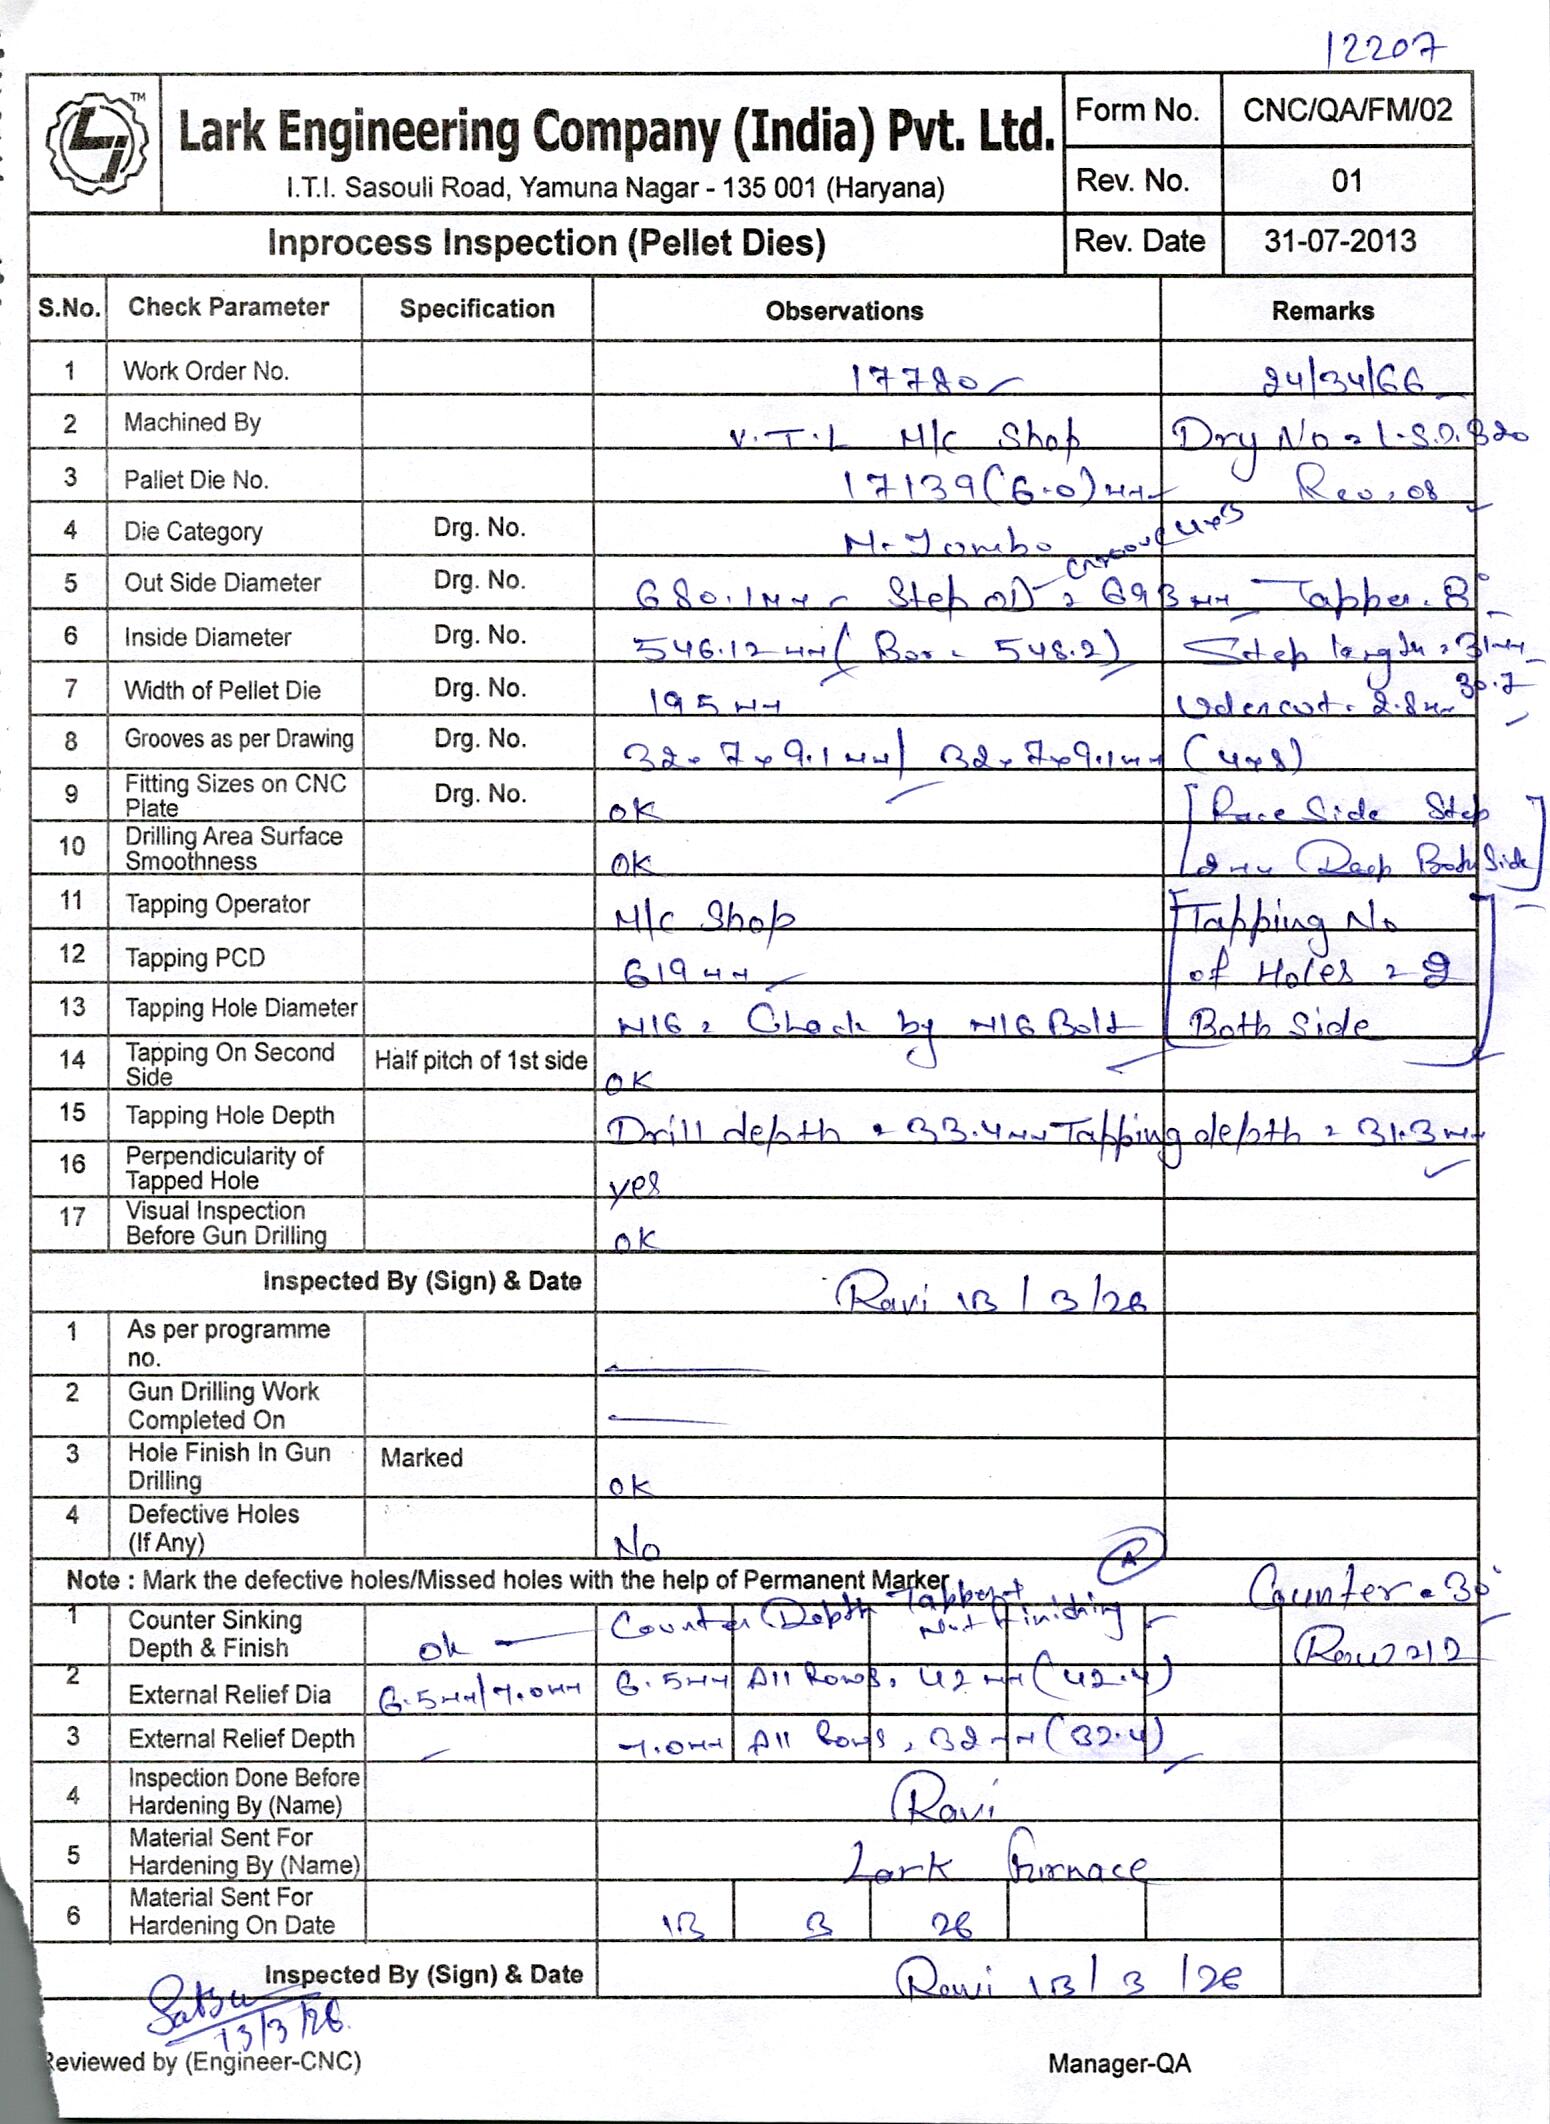 12207
TM
Lark Engineering Company (India) Pvt. Ltd.
I.T.I. Sasouli Road, Yamuna Nagar - 135 001 (Haryana)
Form No. CNC/QA/FM/02
Rev. No. 01
Inprocess Inspection (Pellet Dies) Rev. Date 31-07-2013
S.No. Check Parameter Specification Observations Remarks
1 Work Order No. 17780 24/34/66
2 Machined By V.T.L M/c Shop
3 Pallet Die No. 17139 (6.0) mm Rev. 08
4 Die Category Drg. No.
5 Out Side Diameter Drg. No. 680.1mm Step OD = 693mm Tapper. 8°
6 Inside Diameter Drg. No. 546.12 mm (Bor = 548.2) Step length = 31mm
30.7
7 Width of Pellet Die Drg. No. 195 mm Udercut. 2.8mm
8 Grooves as per Drawing Drg. No. 32x7x9.1mm/ 32x7x9.1mm (4x8)
9 Fitting Sizes on CNC Plate Drg. No. OK [Race Side Step
10 Drilling Area Surface Smoothness OK 2mm Deep Body Side]
11 Tapping Operator M/c Shop [Tapping No
12 Tapping PCD 619 mm of Holes = 9
13 Tapping Hole Diameter M16 = Check by M16 Bolt Both Side]
14 Tapping On Second Side Half pitch of 1st side OK
15 Tapping Hole Depth Drill depth = 33.4mm Tapping depth = 31.3mm
16 Perpendicularity of Tapped Hole yes
17 Visual Inspection Before Gun Drilling OK
Inspected By (Sign) & Date Ravi 13/3/26
1 As per programme no.
2 Gun Drilling Work Completed On
3 Hole Finish In Gun Drilling Marked OK
4 Defective Holes (If Any) No
Note : Mark the defective holes/Missed holes with the help of Permanent Marker
Counter = 30°
1 Counter Sinking Depth & Finish ok Counter Depth Tapper Finishing
2 External Relief Dia 6.5mm/7.0mm 6.5mm All Rows, 42mm (42.4)
3 External Relief Depth 7.0mm All Rows, 32mm (32.4)
4 Inspection Done Before Hardening By (Name) Ravi
5 Material Sent For Hardening By (Name) Lark Furnace
6 Material Sent For Hardening On Date 13 3 26
Inspected By (Sign) & Date Ravi 13/3/26
13/3/26
Reviewed by (Engineer-CNC) Manager-QA